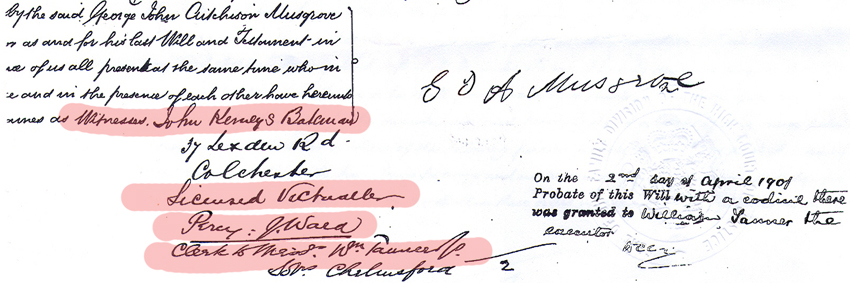 by the said George John Aitchison Musgrove
as and for his last Will and Testament in
of us all present at the same time who in
and in the presence of each other have hereunto
as Witnesses. John Kemeys Bateman
37 Lexden Rd
Colchester
Licensed Victualler
Percy. J. Ward
Clerk to Messrs. Wm Tanner &
Sons Chelmsford
2
G J A Musgrove
On the 2nd day of April 1901
Probate of this Will with a codicil thereto
was granted to William Tanner the
executor